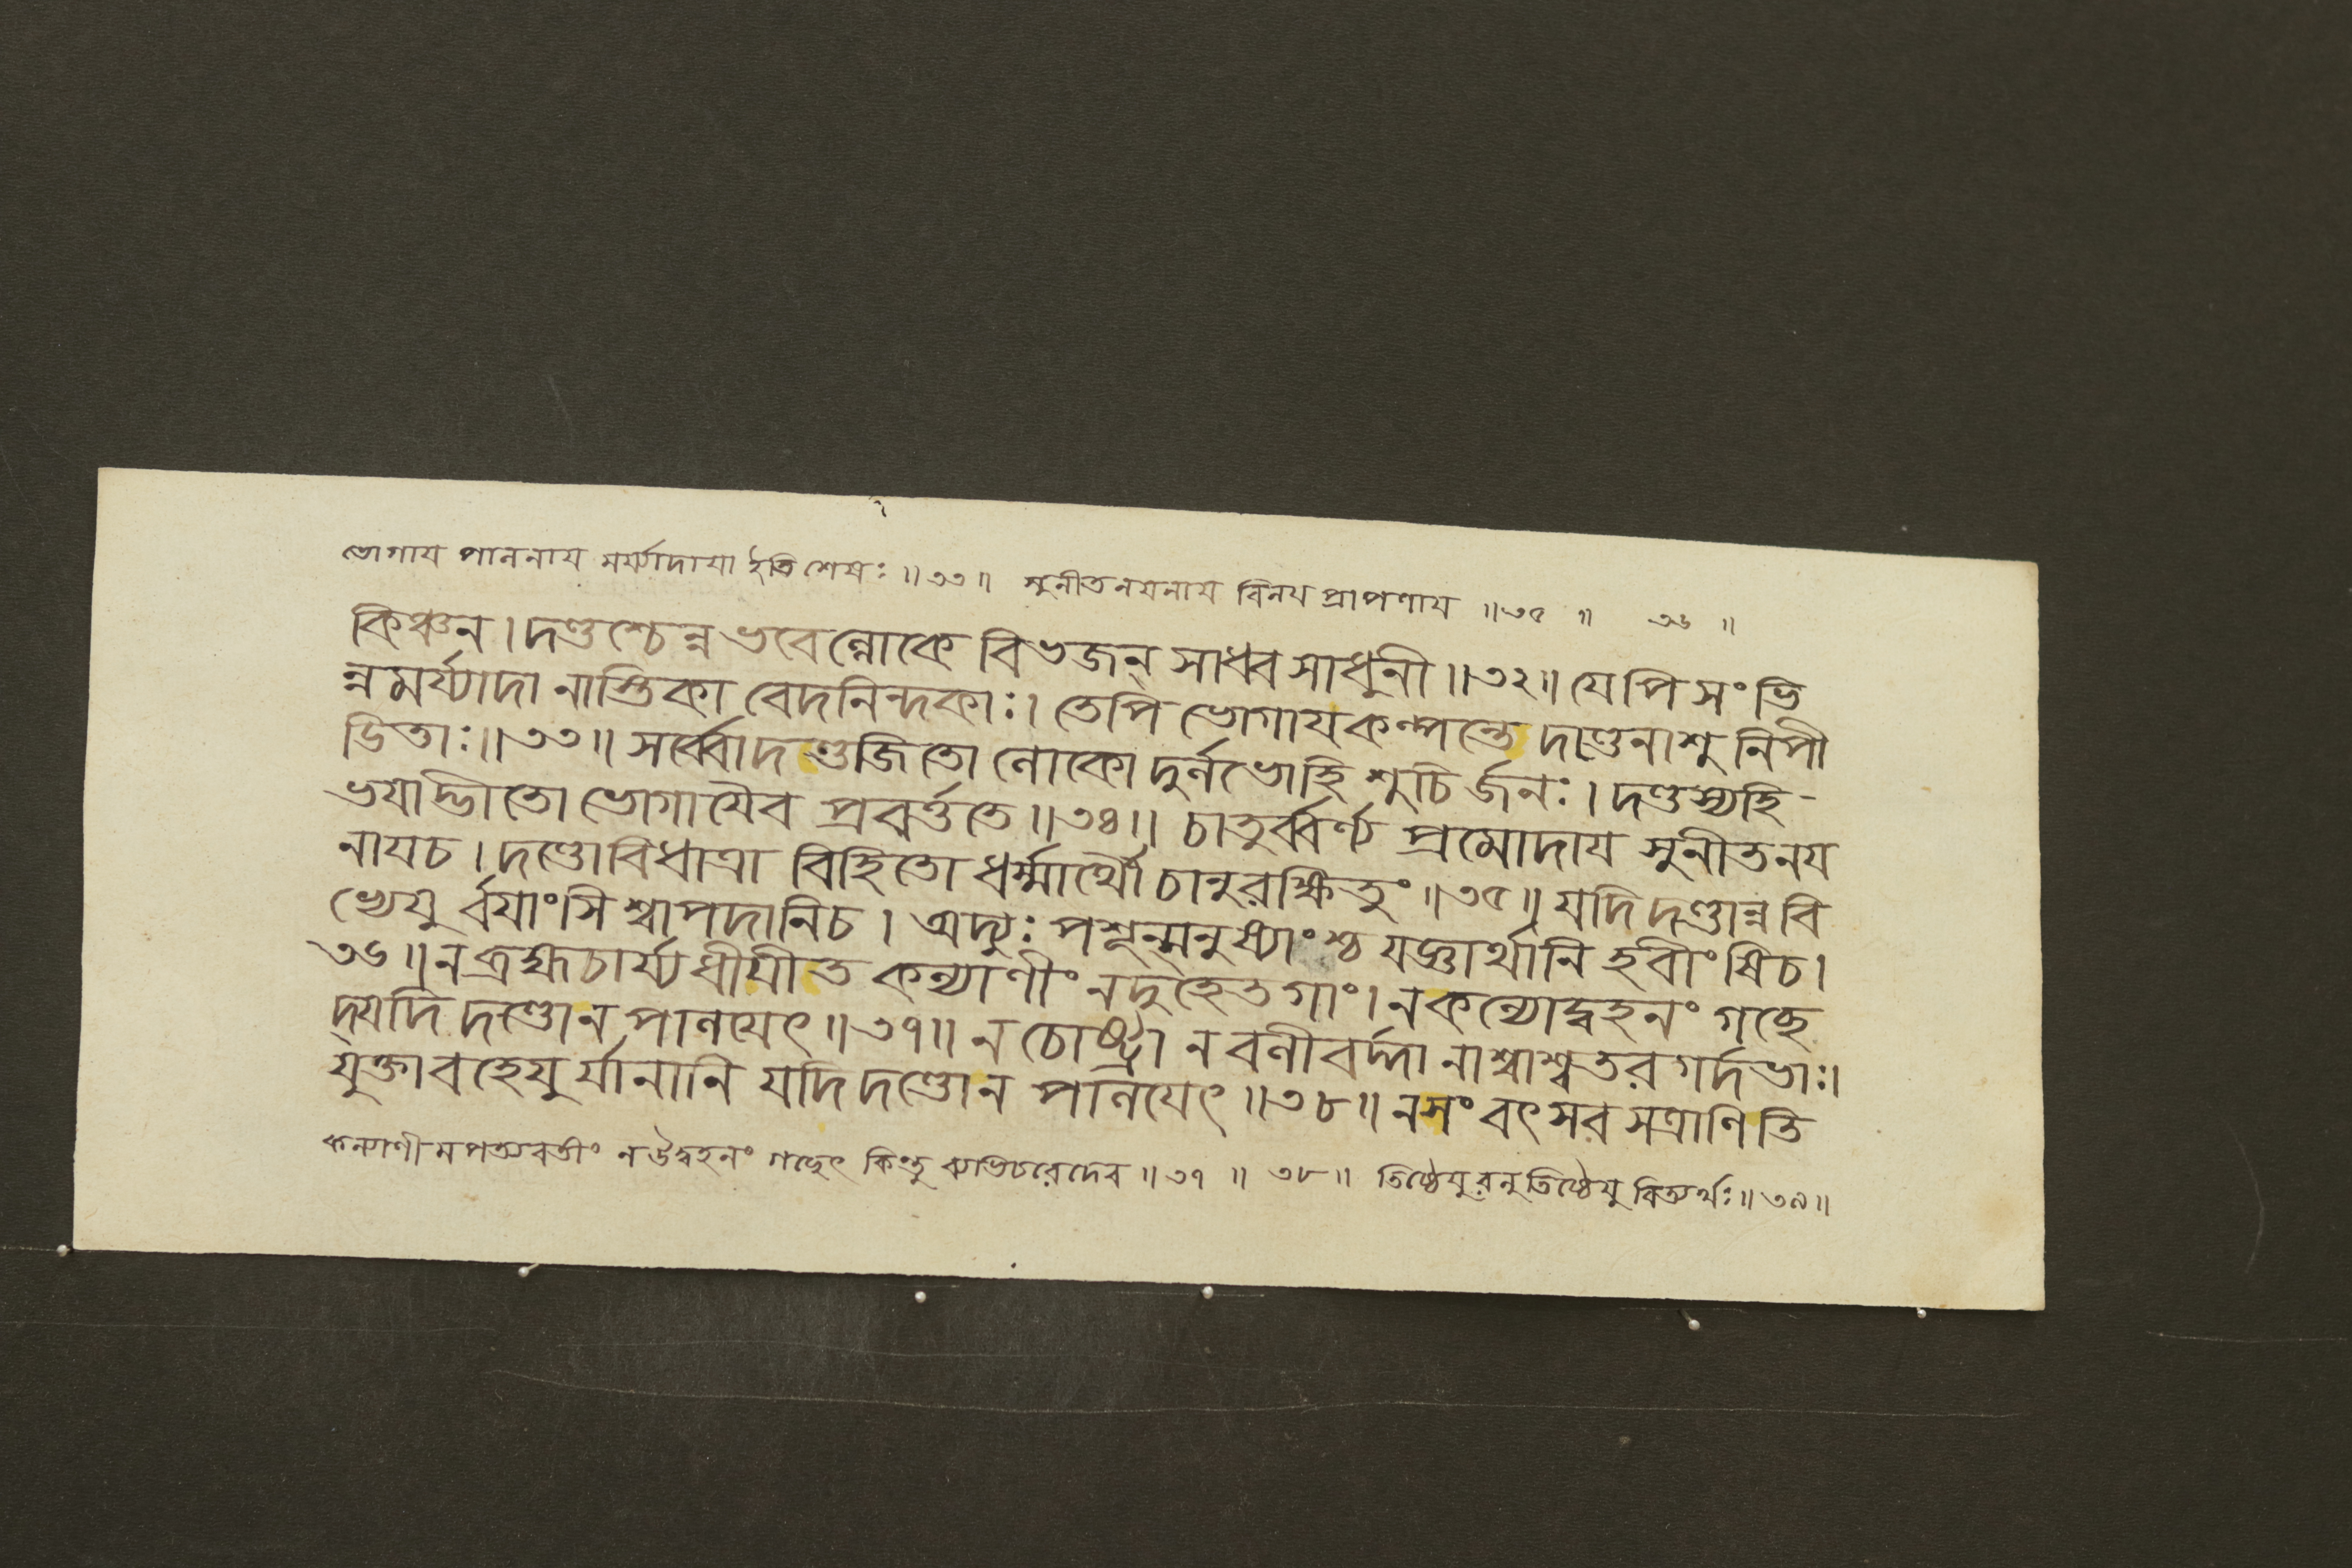 ভোগায পালনায মর্য্যাদাযা ইতি শেষঃ ॥৩৩॥ সুনীতনযনায বিনয প্রাপণায ॥৩৫ ॥ ৩৬ ॥
কিঞ্চন। দণ্ডশ্চেন্ন ভবেল্লোকে বিভজন্ সাধ্বসাধুনী ॥৩২॥ যেপি সংভি
ন্নমর্য্যাদা নাস্তিকা বেদনিন্দকাঃ। তেপি ভোগাযকল্পন্তে দণ্ডেনাশু নিপী
ডিতাঃ॥৩৩॥ সর্ব্বোদণ্ডজিতো লোকো দুর্লভোহি শুচি র্জনঃ। দণ্ডস্যহি-
ভযাদ্ভীতো ভোগাযৈব প্রবর্ত্ততে ॥৩৪॥ চাতুর্ব্বর্ণ্য প্রমোদায সুনীতনয
নাযচ। দণ্ডোবিধাত্রা বিহিতো ধর্ম্মার্থৌ চানুরক্ষিতুং ॥৩৫॥ যদি দণ্ডান্ন বি
ভ্যেযু র্বযাংসি শ্বাপদানিচ। অদ্যুঃ পশূন্মনুষ্যাংশ্চ যজ্ঞার্থানি হবীংষিচ।
৩৬॥ ন ব্রহ্মচার্য্যধীযীত কল্যাণীং নদুহেত গাং। ন কন্যোদ্বহনং গচ্ছে
দ্যদি দণ্ডোন পালযেৎ ॥৩৭॥ ন চোষ্ট্রা ন বলীবর্দ্দা নাশ্বাশ্বতর গর্দভাঃ।
যুক্তাবহেযু র্যানানি যদি দণ্ডোন পালযেৎ ॥৩৮॥ নসংবৎসর সত্রাণি তি
কল্যাণীমপত্যবতীং ন উদ্বহনং গচ্ছেৎ কিন্তু ব্যভিচরেদেব ॥৩৭ ॥ ৩৮॥ তিষ্ঠেযুরনুতিষ্ঠেযু রিত্যর্থঃ॥৩৯॥